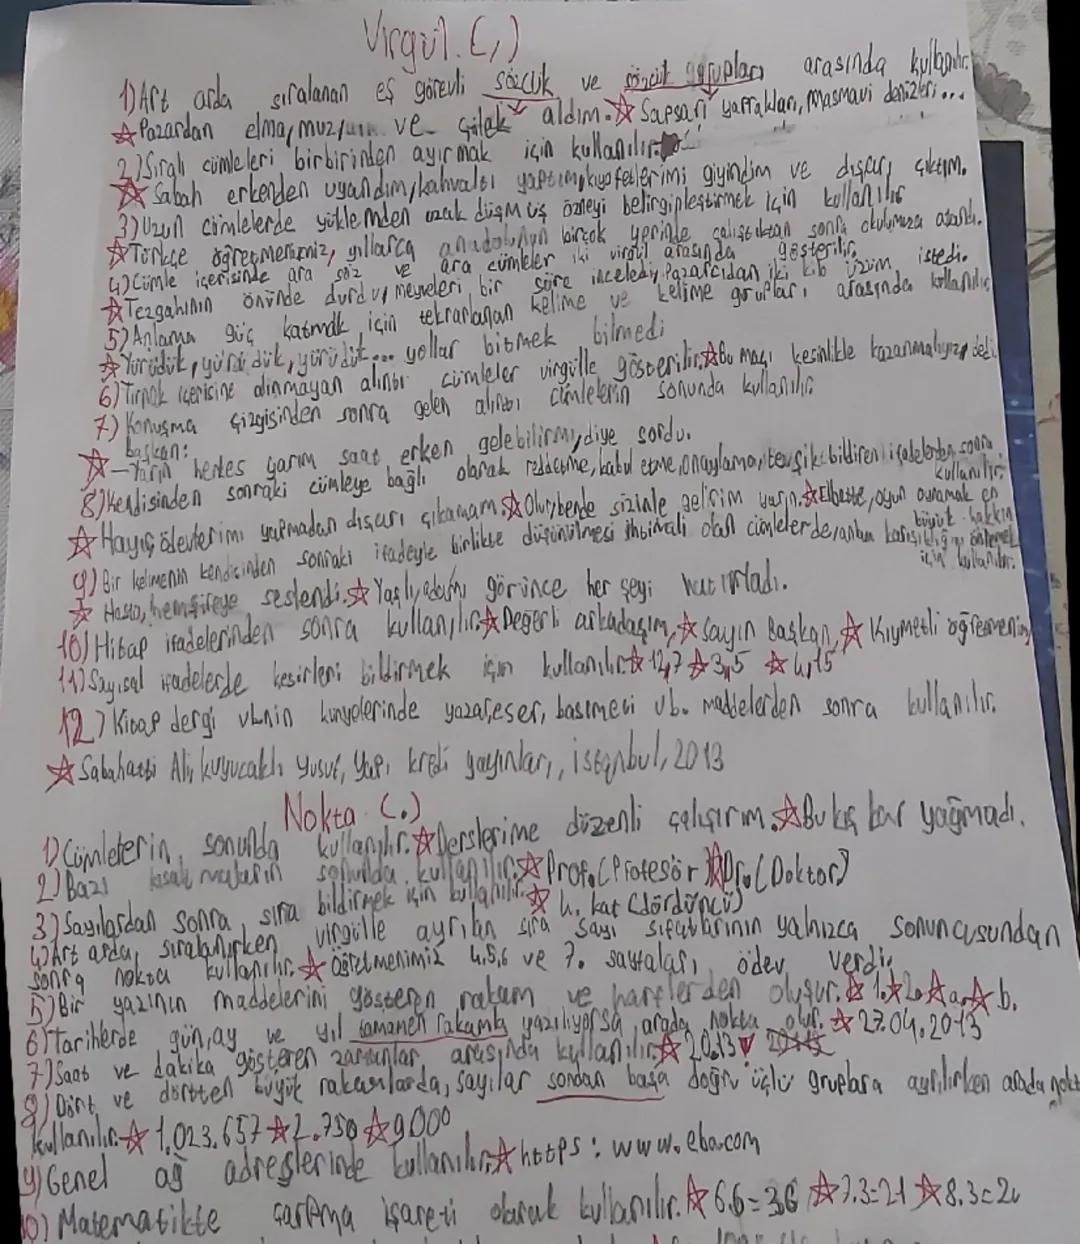 Virgül (,)
1) Art arda sıralanan eş görevli sözcük ve sözcük gurupları arasında kullanılır.
☆ Pazardan elma, muz, ve çilek aldım. ☆ Sapsarı yaprakları, masmavi denizleri...
2) Sıralı cümleleri birbirinden ayırmak için kullanılır.
☆ Sabah erkenden uyandım, kahvaltı yaptım, kıyafetlerimi giyindim ve dışarı çıktım.
3) Uzun cümlelerde yüklemden uzak düşmüş özneyi belirginleştirmek için kullanılır
☆ Türkçe öğretmenimiz, yıllarca anadolunun birçok yerinde çalıştıktan sonra okulumuza atandı.
4) Cümle içerisinde ara söz ve ara cümleler iki virgül arasında gösterilir.
☆ Tezgahının önünde durdu, meyveleri bir süre inceledi, Pazarcıdan iki kilo üzüm istedi.
5) Anlama güç katmak için tekrarlanan kelime ve kelime grupları arasında kullanılır
☆ Yürüdük, yürüdük, yürüdük... yollar bitmek bilmedi
6) Tırnak içerisine alınmayan alıntı cümleler virgülle gösterilir. ☆ Bu maçı kesinlikle kazanmalıyız, dedi
7) Konuşma çizgisinden sonra gelen alıntı cümlelerin sonunda kullanılır.
başkan:
☆ – Yarın herkes yarım saat erken gelebilirmi, diye sordu.
8) Kendisinden sonraki cümleye bağlı olarak reddetme, kabul etme, onaylama, teşvik bildiren ifadelerden sonra
kullanılır.
☆ Hayır, ödevlerimi yapmadan dışarı çıkamam. ☆ Olur, bende sizinle gelirim yarın. ☆ Elbette, oyun oynamak en
büyük hakkın
9) Bir kelimenin kendisinden sonraki ifadeyle birlikte düşünülmesi ihtimali olan cümlelerde, anlam karışıklığını önlemek
için kullanılır.
☆ Hasta, hemşireye seslendi. ☆ Yaşlı, adamı görünce her şeyi hatırladı.
10) Hitap ifadelerinden sonra kullanılır. ☆ Değerli arkadaşım, ☆ Sayın Başkan, ☆ Kıymetli öğretmenim,
11) Sayısal ifadelerde kesirleri bildirmek için kullanılır. ☆ 12,7 ☆ 3,5 ☆ 4,15
12) Kitap dergi vb.nin künyelerinde yazar, eser, basımevi vb. maddelerden sonra kullanılır.
☆ Sabahatti Ali, kuyucaklı Yusuf, Yapı kredi yayınları, istanbul, 2013
Nokta (.)
1) Cümlelerin sonunda kullanılır. ☆ Derslerime düzenli çalışırım. ☆ Bu kış kar yağmadı.
2) Bazı kısaltmaların sonunda kullanılır. ☆ Prof. (Profesör) ☆ Dr. (Doktor)
3) Sayılardan sonra sıra bildirmek için kullanılır. ☆ 4. kat (dördüncü)
4) Art arda sıralanırken virgülle ayrılan sıra sayı sıfatlarının yalnızca sonuncusundan
sonra nokta kullanılır. ☆ Öğretmenimiz 4,5,6 ve 7. sayfaları ödev verdi.
5) Bir yazının maddelerini gösteren rakam ve harflerden oluşur. ☆ 1. ☆ 2. ☆ a. ☆ b.
6) Tarihlerde gün, ay ve yıl tamamen rakamla yazılıyorsa arada nokta olur. ☆ 27.04.2013
7) Saat ve dakika gösteren zamanlar arasında kullanılır. ☆ 20.13
8) Dört ve dörtten büyük rakamlarda, sayılar sondan başa doğru üçlü gruplara ayrılırken arada nokta
kullanılır. ☆ 1.023.657 ☆ 2.750 ☆ 9000
9) Genel ağ adreslerinde kullanılır. ☆ https: www.eba.com
10) Matematikte çarpma işareti olarak kullanılır. ☆ 6.6=36 ☆ 7.3=21 ☆ 8.3=24